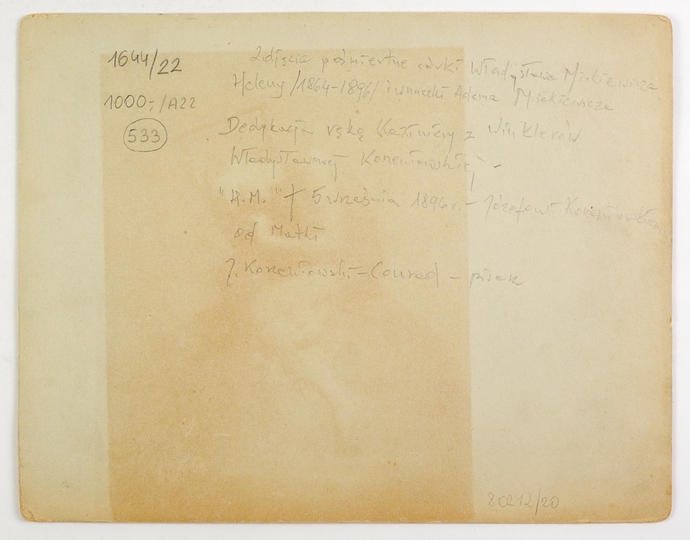 1644/22
1000,-/A22
533
Zdjęcie pośmiertne córki Władysława Mickiewicza
Heleny /1864-1896/ i wnuczki Adama Mickiewicza
Dedykacja ręką Kazimiery z Winklerów
Władysławowej Korzeniowskiej -
"H.M." † 5 września 1896 r. - Józefowi Korzeniowskiemu
od Matki
J. Korzeniowski-Conrad - pisarz
80212/20